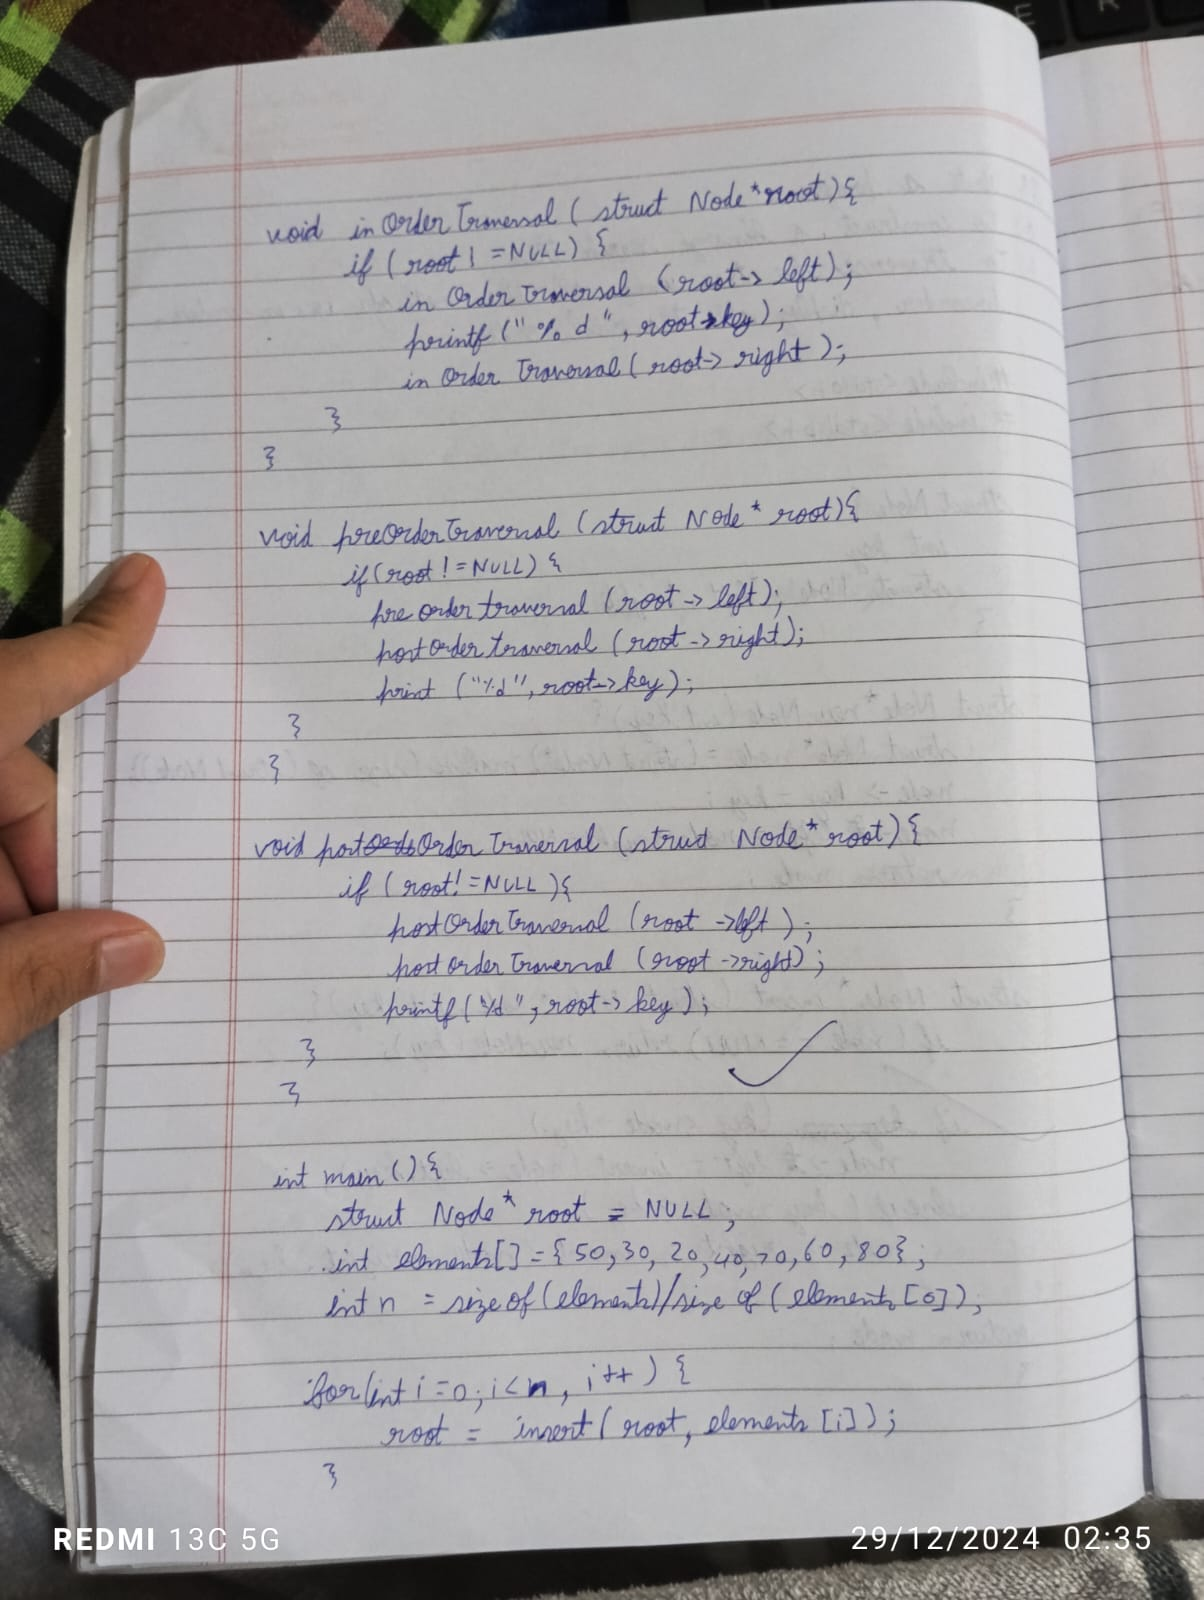 void inOrderTraversal ( struct Node *root){
if ( root ! =NULL) {
in Order Traversal (root-> left);
printf (" % d ", root->key);
in Order Traversal ( root-> right );
}
}
void preOrderTraversal (struct Node * root){
if (root != NULL) {
pre order traversal (root -> left);
postOrder traversal (root -> right);
print ("%d", root->key);
}
}
void postOrder Traversal (struct Node * root) {
if ( root! =NULL ){
postOrder Traversal (root ->left );
post order Traversal (root ->right);
printf ( "%d", root-> key );
}
}
int main () {
struct Node * root = NULL;
int elements[] = { 50, 30, 20, 40, 70, 60, 80};
int n = size of (elements)/size of ( elements [0]);
for(int i =0; i<n, i++ ) {
root = insert( root, elements [i]);
}
REDMI 13C 5G
29/12/2024 02:35